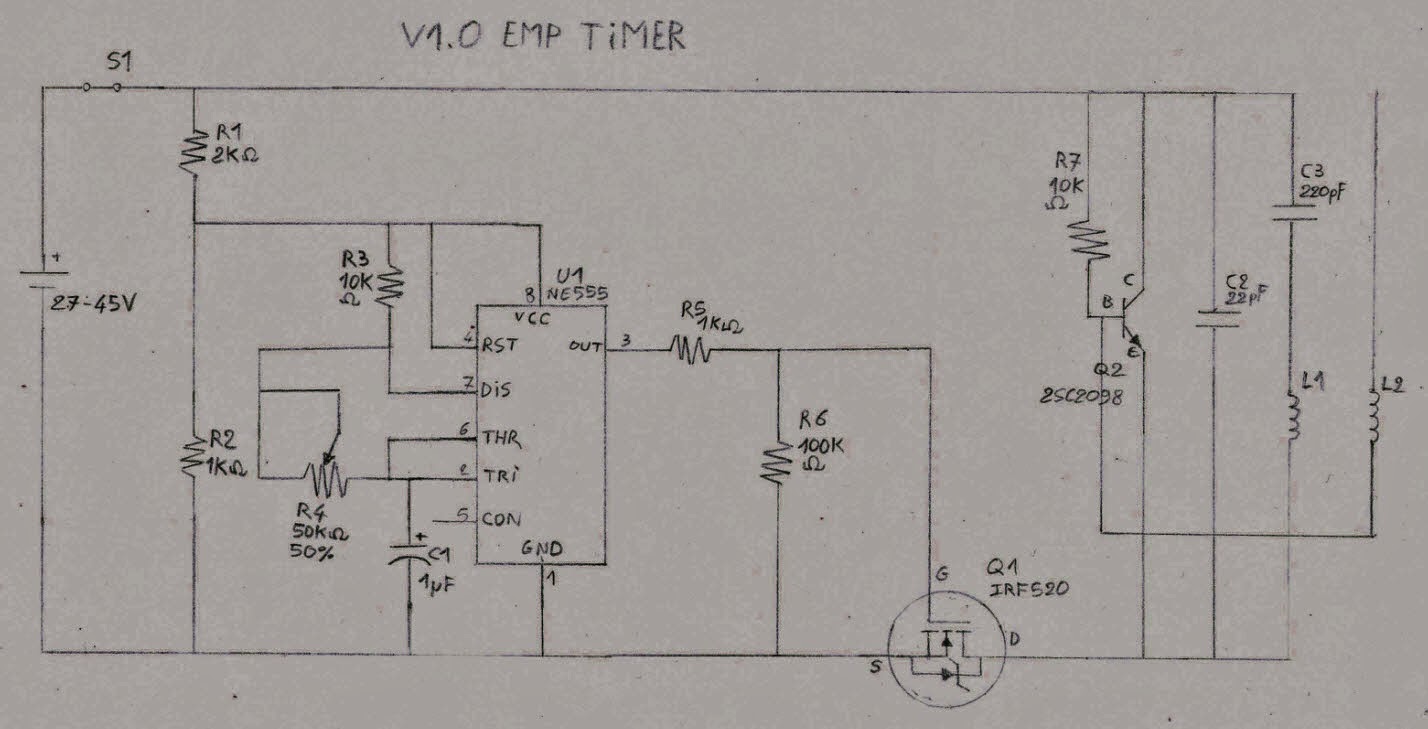 V1.0 EMP TiMER
S1
R1
2KΩ
+
27-45V
R3
10K
Ω
R2
1KΩ
R4
50KΩ
50%
+
C1
1µF
U1
NE555
8
VCC
4
RST
OUT
3
7
DiS
6
THR
2
TRi
5
CON
GND
1
R5
1KΩ
R6
100K
Ω
G
Q1
IRF520
S
D
R7
10K
Ω
C
B
E
Q2
2SC2098
C2
22pF
C3
220pF
L1
L2